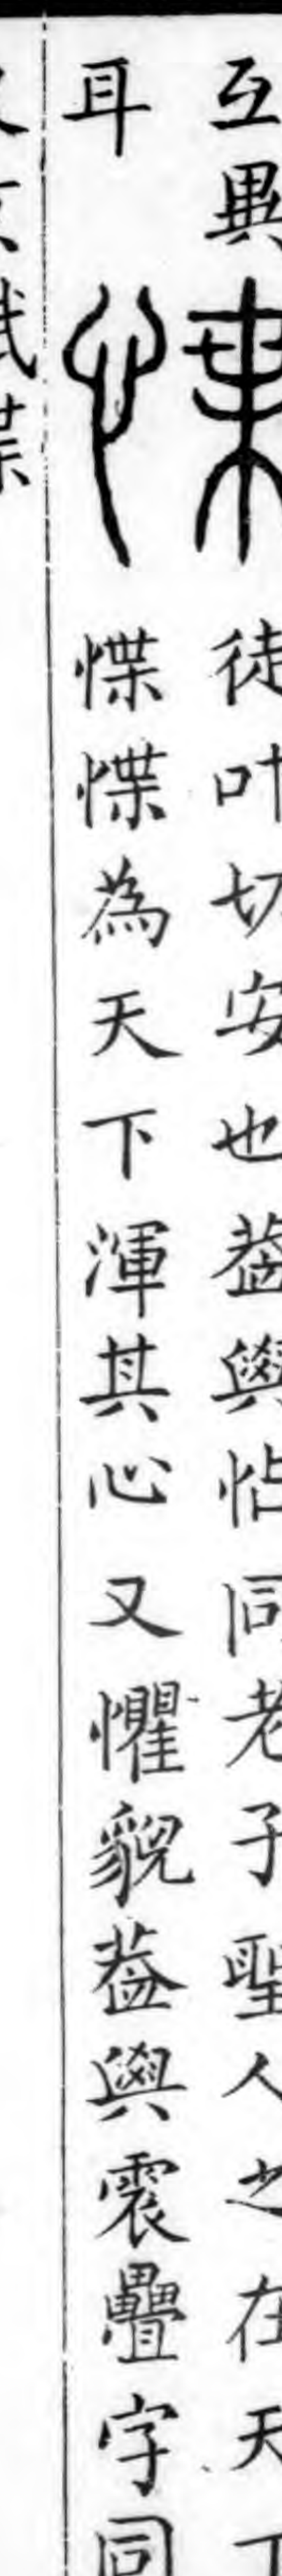 互異 徒叶切安也葢與怗同老子聖人之在天下
耳 惵惵為天下渾其心又懼貎葢與震疊字同